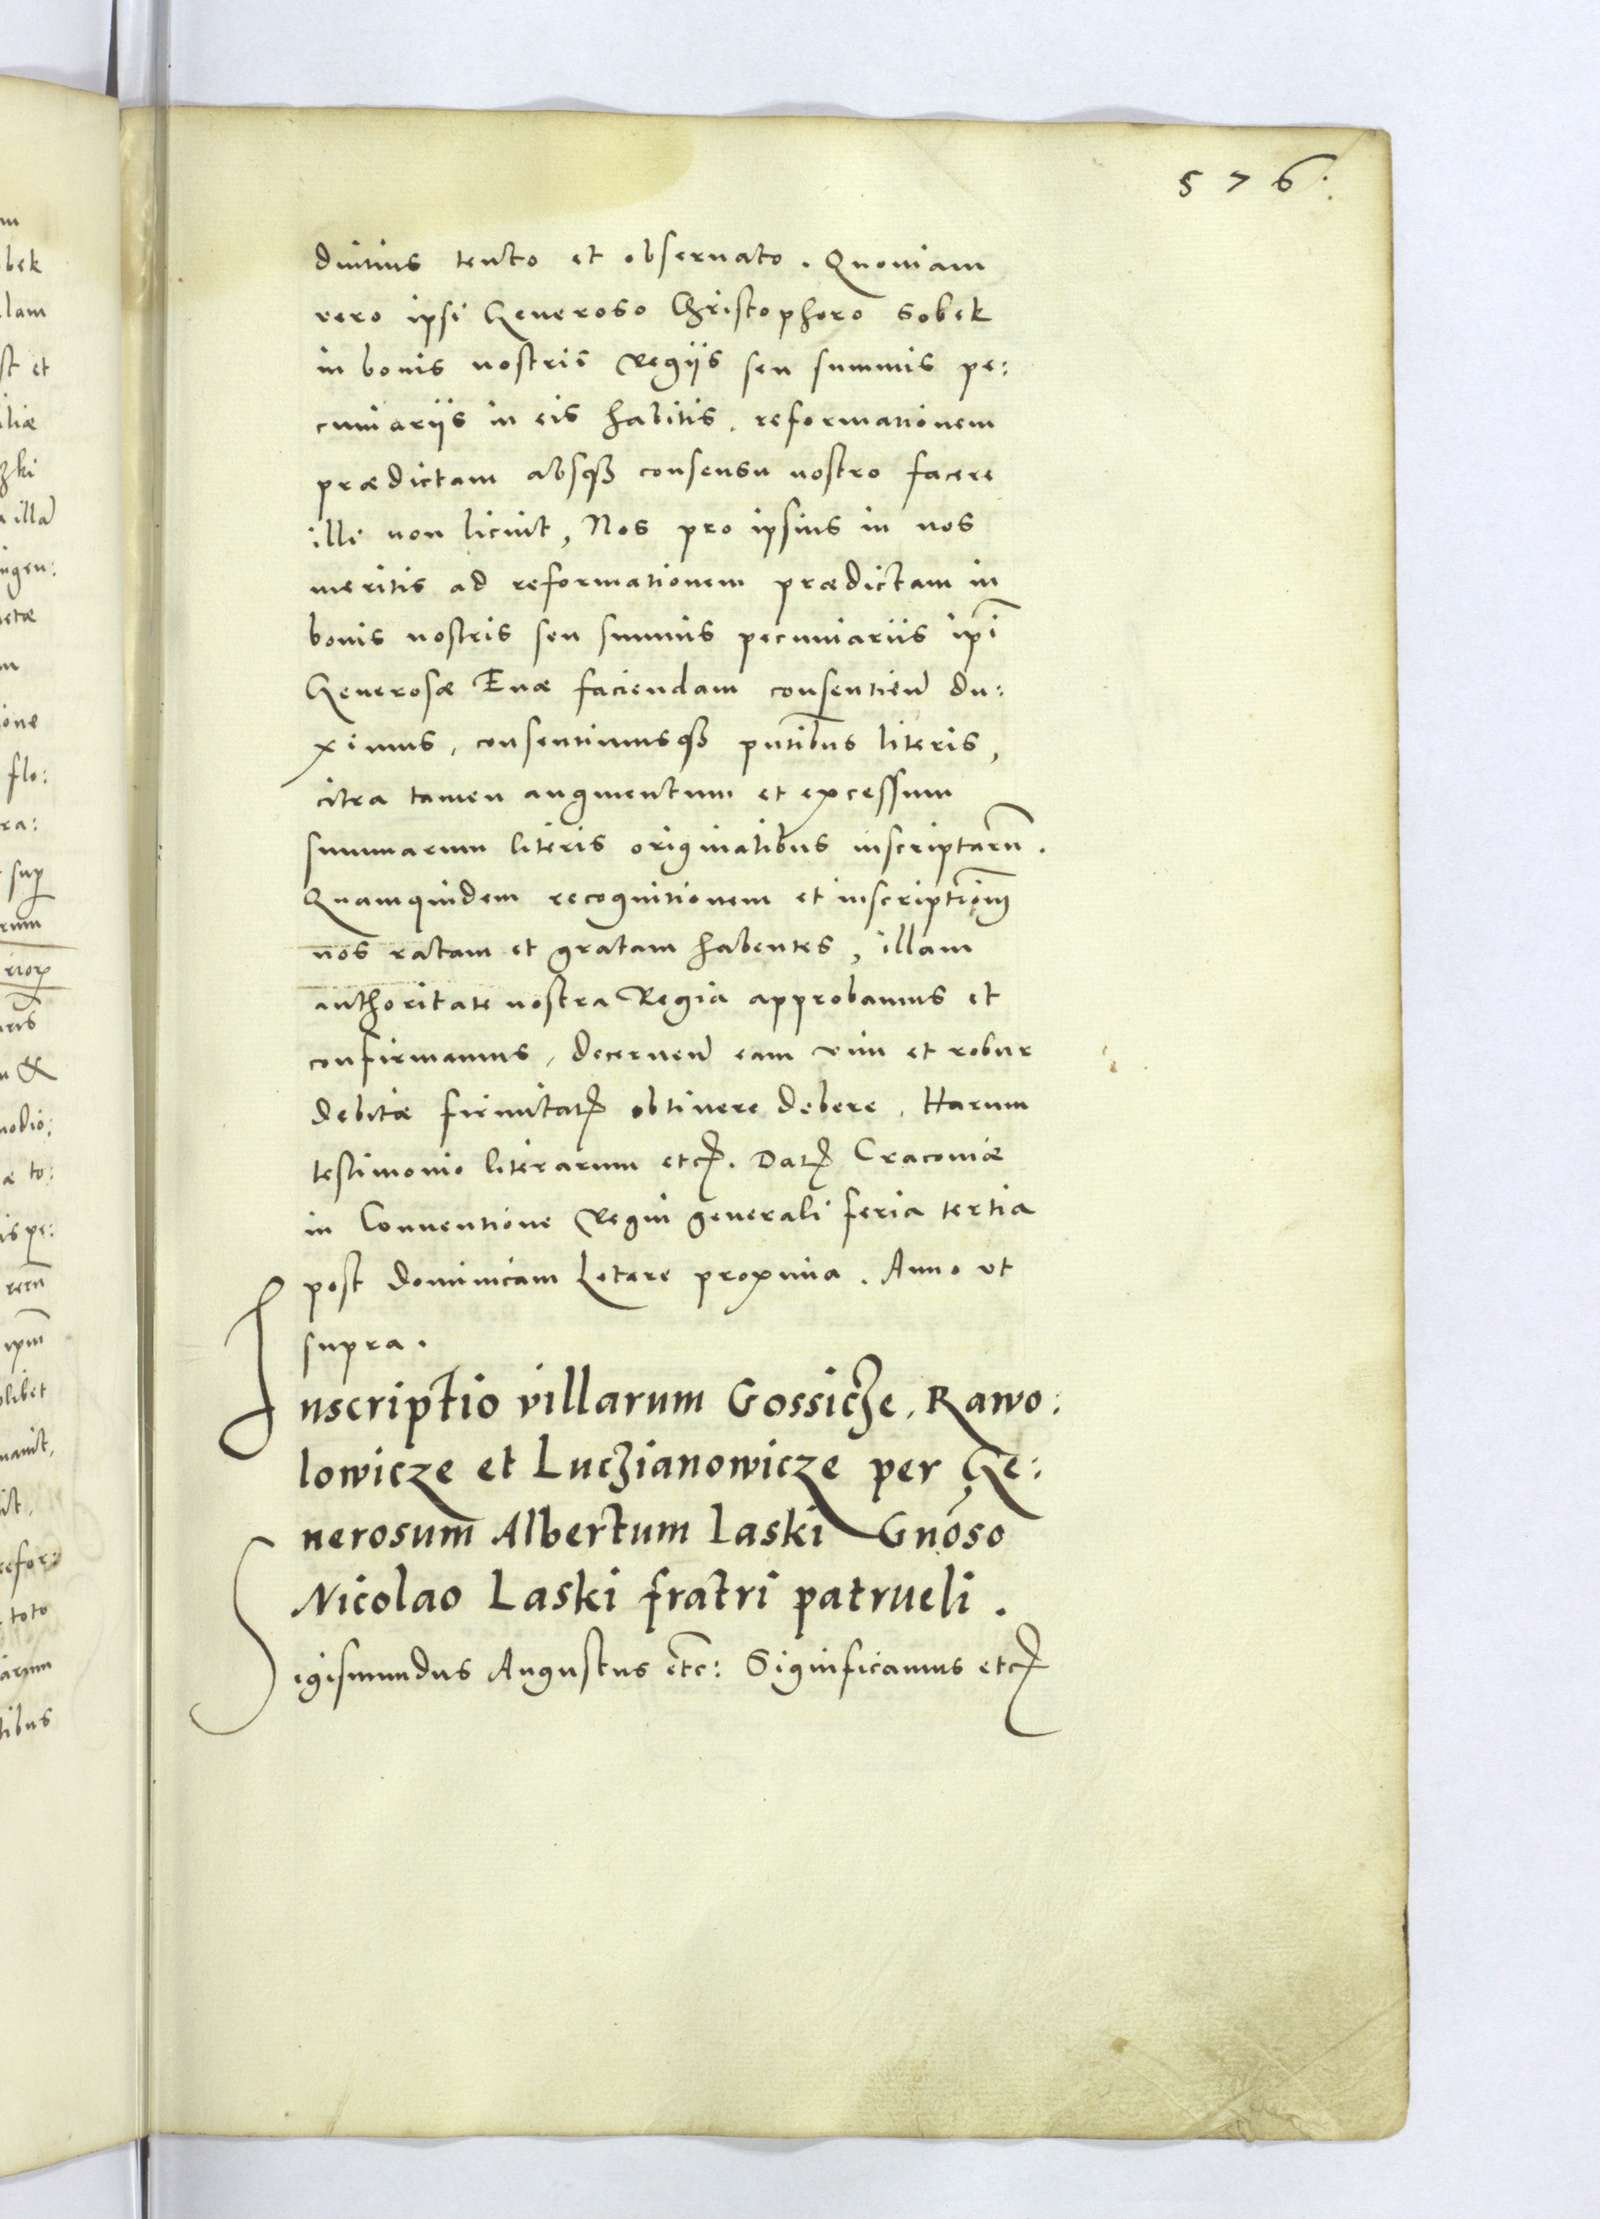 576.
diutius tento et obseruato. Quoniam
vero ipsi Generoso Christophoro Sobek
in bonis nostris Regijs seu summis pe:
cuniarijs in eis habitis, reformationem
prædictam absqꝫ consensu nostro facere
illi non licuit, Nos pro ipsius in nos
meritis ad reformationem prædictam in
bonis nostris seu summis pecuniarijs ip̄i
Generosæ Euæ faciendam consentien̄ du:
ximus, consentimusqꝫ pn̄tibus literis,
citra tamen augmentum et excessum
summarum literis originalibus inscriptarū.
Quamquidem recognitionem et inscriptionē
nos ratam et gratam habentes, illam
authoritate nostra Regia approbamus et
confirmamus, decernen̄ eam vim et robur
debitæ firmitatꝭ obtinere debere. Harum
testimonio literarum etcꝭ. Datꝭ Cracouiæ
in Conuentione Regni generali feria tertia
post dominicam Letare proxima. Anno vt
supra.
Inscriptio villarum Gossicꝫe, Rawo:
lowicze et Lucꝫianowicze per Ge:
nerosum Albertum Laski Gnōso
Nicolao Laski fratri patrueli.
Sigismundus Augustus etc̄: Significamus etcꝭ